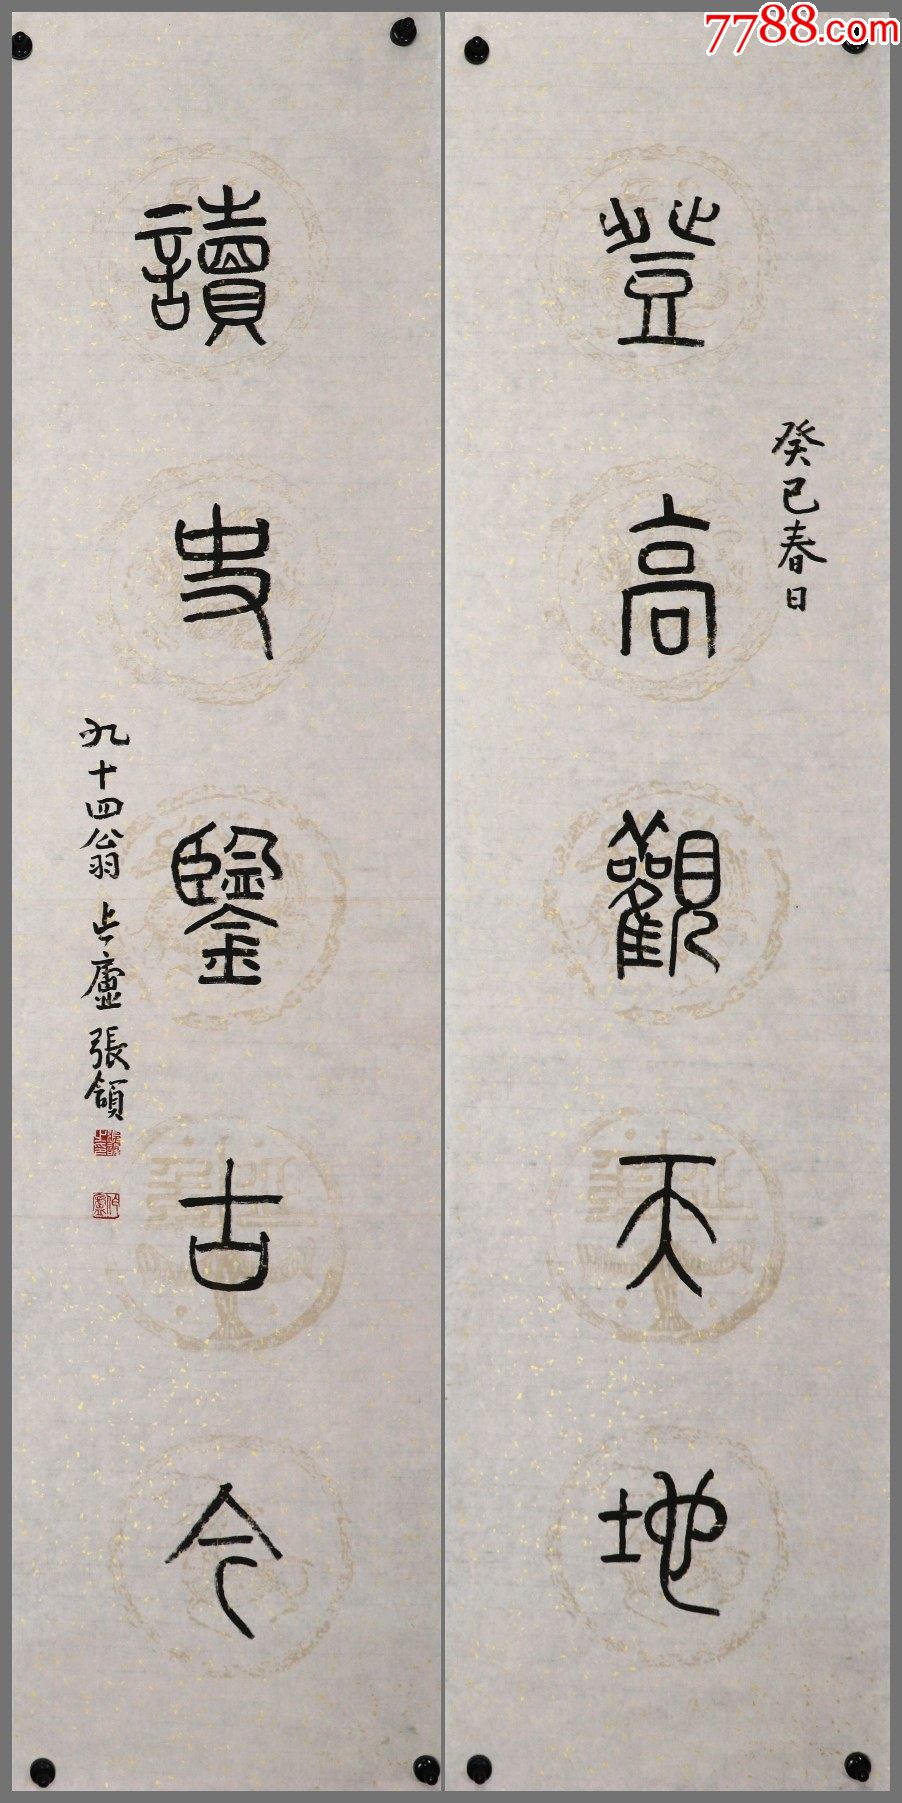 7788.com
登高觀天地
癸巳春日
讀史鑒古今
九十四翁 作廬 張頷